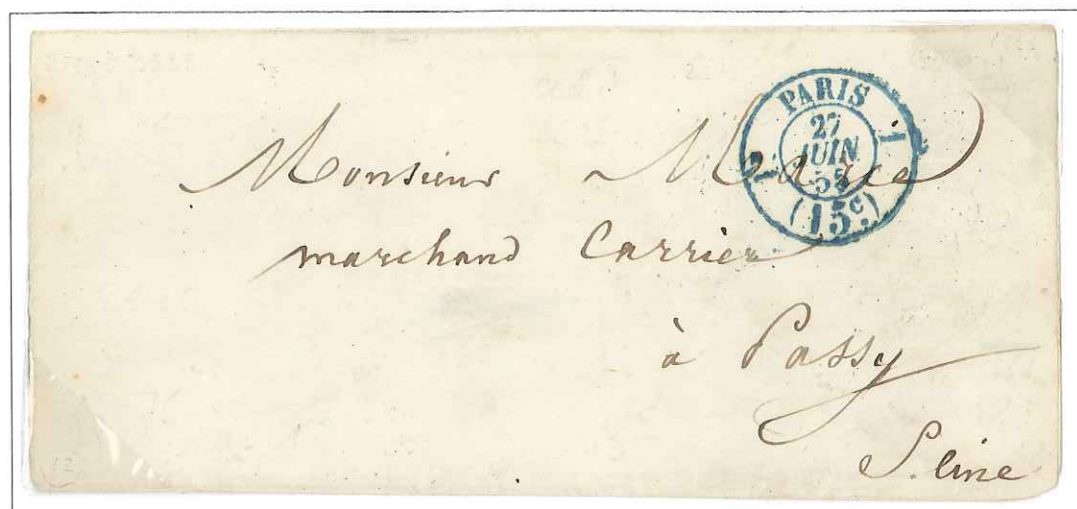 PARIS 1
27
JUIN
(15c)
Monsieur Marie
marchand Carrier
à Passy
Seine
12